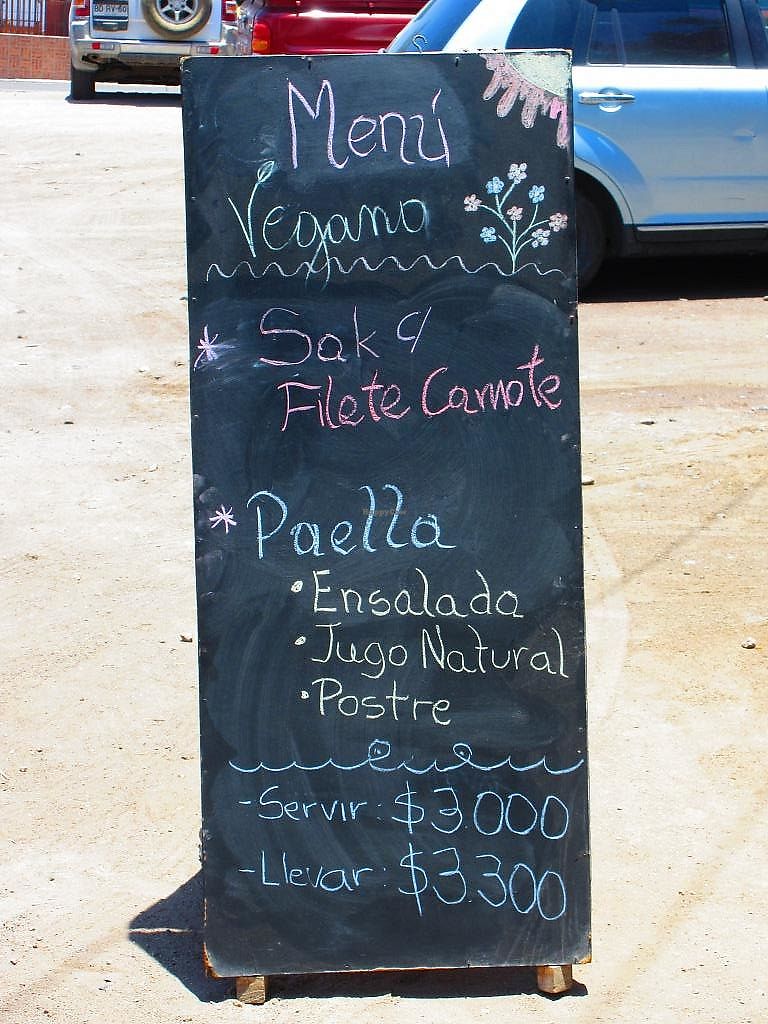 Menú
Vegano
* Sak c/
Filete Carnote
* Paella
• Ensalada
• Jugo Natural
• Postre
- Servir: $3.000
- Llevar: $3.300
HappyCow